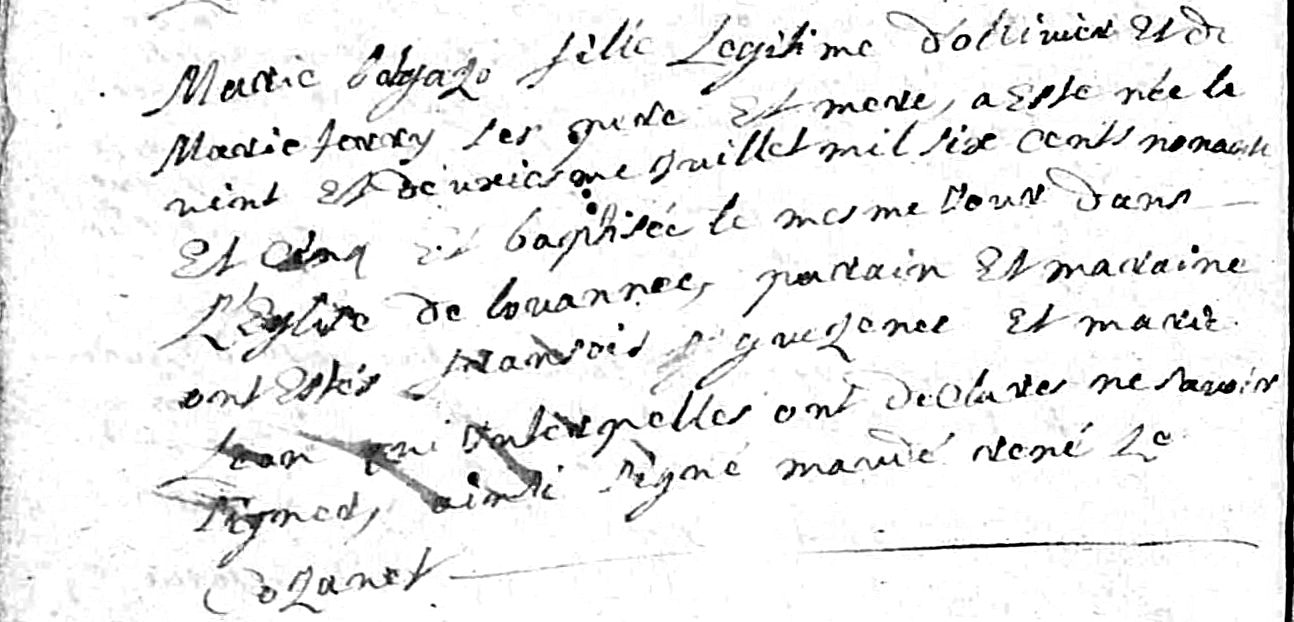 Marie fille Legitime d'ollivier Et de
Marie ferry ses pere Et mere, a Este née le
vint Et deuxiesme Juillet mil six Cents nonante
Et Cinq Et baptisée le mesme Jour dans
L'Eglise de louannec, parain Et maraine
ont Estés fransois guezenec Et marie
Jean qui Interpelles ont declares ne savoir
signer, ainsi signé maudé rené Le
Cozanet